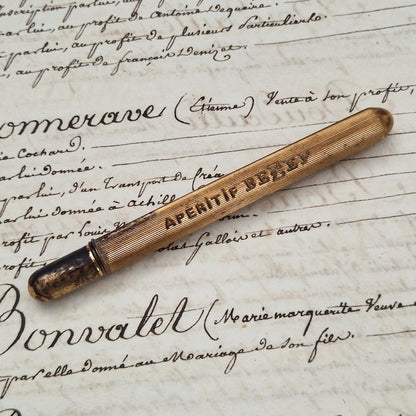 inscription par lui, au profit de Antoine
par lui, au profit de plusieurs Particuliers
par lui, au profit de françois Denizet
onnerave (Etienne) Vente à son profit,
ie Cochard.
par lui donnée.
par lui, d'un Transport de
par lui donnée à Achill
profit par Louis
olas Gallois et autres.
APERITIF
Bonvalet (Marie marguerite Veuve
par elle donné au Mariage de son fils.